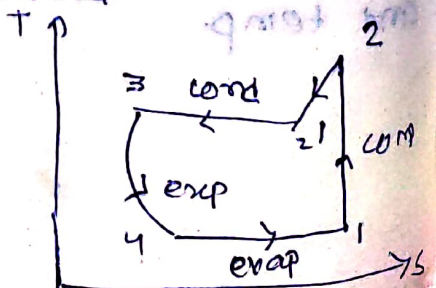 T
2
3
cond
2'
com
exp
4
evap
1
s